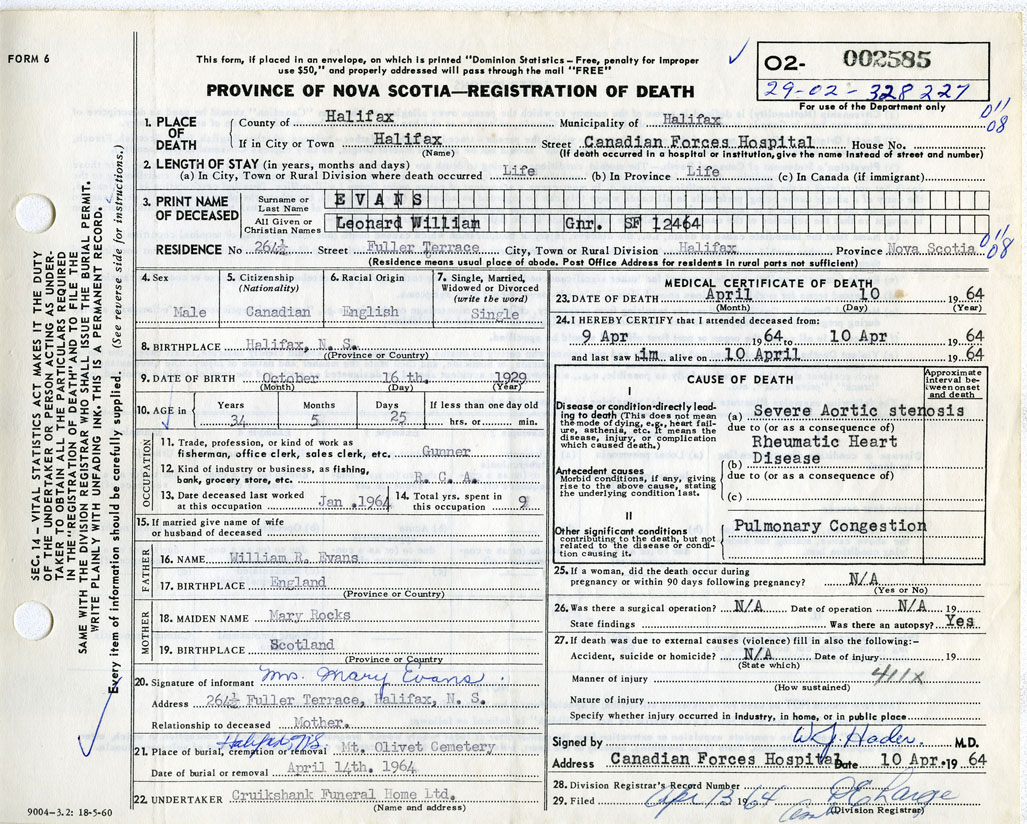 FORM 6
This form, if placed in an envelope, on which is printed "Dominion Statistics – Free, penalty for improper
use $50," and properly addressed will pass through the mail "FREE"
O2- 002585
29-02-328227
For use of the Department only
PROVINCE OF NOVA SCOTIA—REGISTRATION OF DEATH
011
08
1. PLACE OF DEATH
County of Halifax Municipality of Halifax
If in City or Town Halifax Street Canadian Forces Hospital House No.
(Name) (If death occurred in a hospital or institution, give the name instead of street and number)
2. LENGTH OF STAY (in years, months and days)
(a) In City, Town or Rural Division where death occurred Life (b) In Province Life (c) In Canada (if immigrant)
3. PRINT NAME OF DECEASED
Surname or Last Name EVANS
All Given or Christian Names Leonard William Gnr. SF 12464
RESIDENCE No 264½ Street Fuller Terrace City, Town or Rural Division Halifax Province Nova Scotia
011
08
(Residence means usual place of abode. Post Office Address for residents in rural parts not sufficient)
4. Sex
Male
5. Citizenship
(Nationality)
Canadian
6. Racial Origin
English
7. Single, Married,
Widowed or Divorced
(write the word)
Single
8. BIRTHPLACE Halifax, N. S.
(Province or Country)
9. DATE OF BIRTH October 16 th. 1929
(Month) (Day) (Year)
10. AGE in Years Months Days If less than one day old
34 5 25 hrs. or min.
OCCUPATION
11. Trade, profession, or kind of work as
fisherman, office clerk, sales clerk, etc. Gunner
12. Kind of industry or business, as fishing,
bank, grocery store, etc. R. C. A.
13. Date deceased last worked
at this occupation Jan .1964
14. Total yrs. spent in
this occupation 9
15. If married give name of wife
or husband of deceased
FATHER
16. NAME William R. Evans
17. BIRTHPLACE England
(Province or Country)
MOTHER
18. MAIDEN NAME Mary Rocks
19. BIRTHPLACE Scotland
(Province or Country
20. Signature of informant Mrs. Mary Evans.
Address 264½ Fuller Terrace, Halifax, N. S.
Relationship to deceased Mother.
Halifax, N.S.
21. Place of burial, cremation or removal Mt. Olivet Cemetery
Date of burial or removal April 14th. 1964
22. UNDERTAKER Cruikshank Funeral Home Ltd.
(Name and address)
9004-3.2: 18-5-60
MEDICAL CERTIFICATE OF DEATH
23. DATE OF DEATH April 10 19 64
(Month) (Day) (Year)
24. I HEREBY CERTIFY that I attended deceased from:
9 Apr 1964 to 10 Apr 19 64
and last saw him alive on 10 April 19 64
CAUSE OF DEATH
Approximate
interval be-
tween onset
and death
I
Disease or condition directly lead-
ing to death (This does not mean
the mode of dying, e.g., heart fail-
ure, asthenia, etc. It means the
disease, injury, or complication
which caused death.)
(a) Severe Aortic stenosis
due to (or as a consequence of)
Rheumatic Heart
(b) Disease
due to (or as a consequence of)
(c)
Antecedent causes
Morbid conditions, if any, giving
rise to the above cause, stating
the underlying condition last.
II
Other significant conditions
contributing to the death, but not
related to the disease or condi-
tion causing it.
Pulmonary Congestion
25. If a woman, did the death occur during
pregnancy or within 90 days following pregnancy? N/A
(Yes or No)
26. Was there a surgical operation? N/A Date of operation N/A 19
State findings Was there an autopsy? Yes
27. If death was due to external causes (violence) fill in also the following:–
Accident, suicide or homicide? N/A Date of injury 19
(State which)
Manner of injury 411x
(How sustained)
Nature of injury
Specify whether injury occurred in industry, in home, or in public place
Signed by M.D.
Address Canadian Forces Hospital Date 10 Apr. 19 64
28. Division Registrar's Record Number
29. Filed Apr 13 1964
(Division Registrar)
SEC. 14 – VITAL STATISTICS ACT MAKES IT THE DUTY
OF THE UNDERTAKER OR PERSON ACTING AS UNDER-
TAKER TO OBTAIN ALL THE PARTICULARS REQUIRED
IN THE "REGISTRATION OF DEATH" AND TO FILE THE
SAME WITH THE DIVISION REGISTRAR WHO SHALL ISSUE THE BURIAL PERMIT.
WRITE PLAINLY WITH UNFADING INK. THIS IS A PERMANENT RECORD.
Every item of information should be carefully supplied. (See reverse side for instructions.)